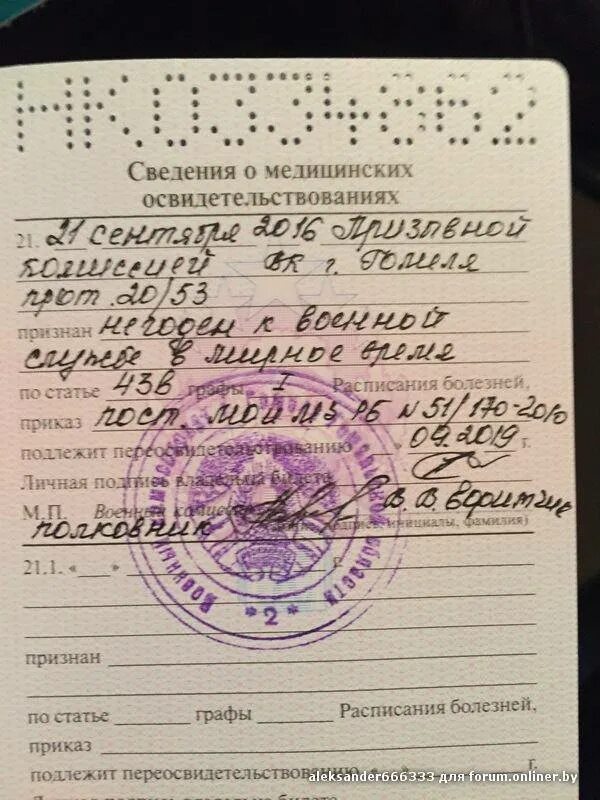 НК 0334862
Сведения о медицинских
освидетельствованиях
21. 21 сентября 2016 Призывной
комиссией ВК г. Гомеля
прот. 20/53
признан не годен к военной
службе в мирное время
по статье 43В графы I Расписания болезней,
приказ пост. МО и МЗ РБ N 51/170-2010
подлежит переосвидетельствованию « » 09.2019 г.
Личная подпись владельца билета
М.П. Военный комиссар В.В.
полковник подпись, инициалы, фамилия)
Военный комиссариат области
* 2 *
21.1. «___» г.
признан
по статье графы Расписания болезней,
приказ
подлежит переосвидетельствованию « » г.
Личная подпись владельца билета
aleksander666333 для forum.onliner.by